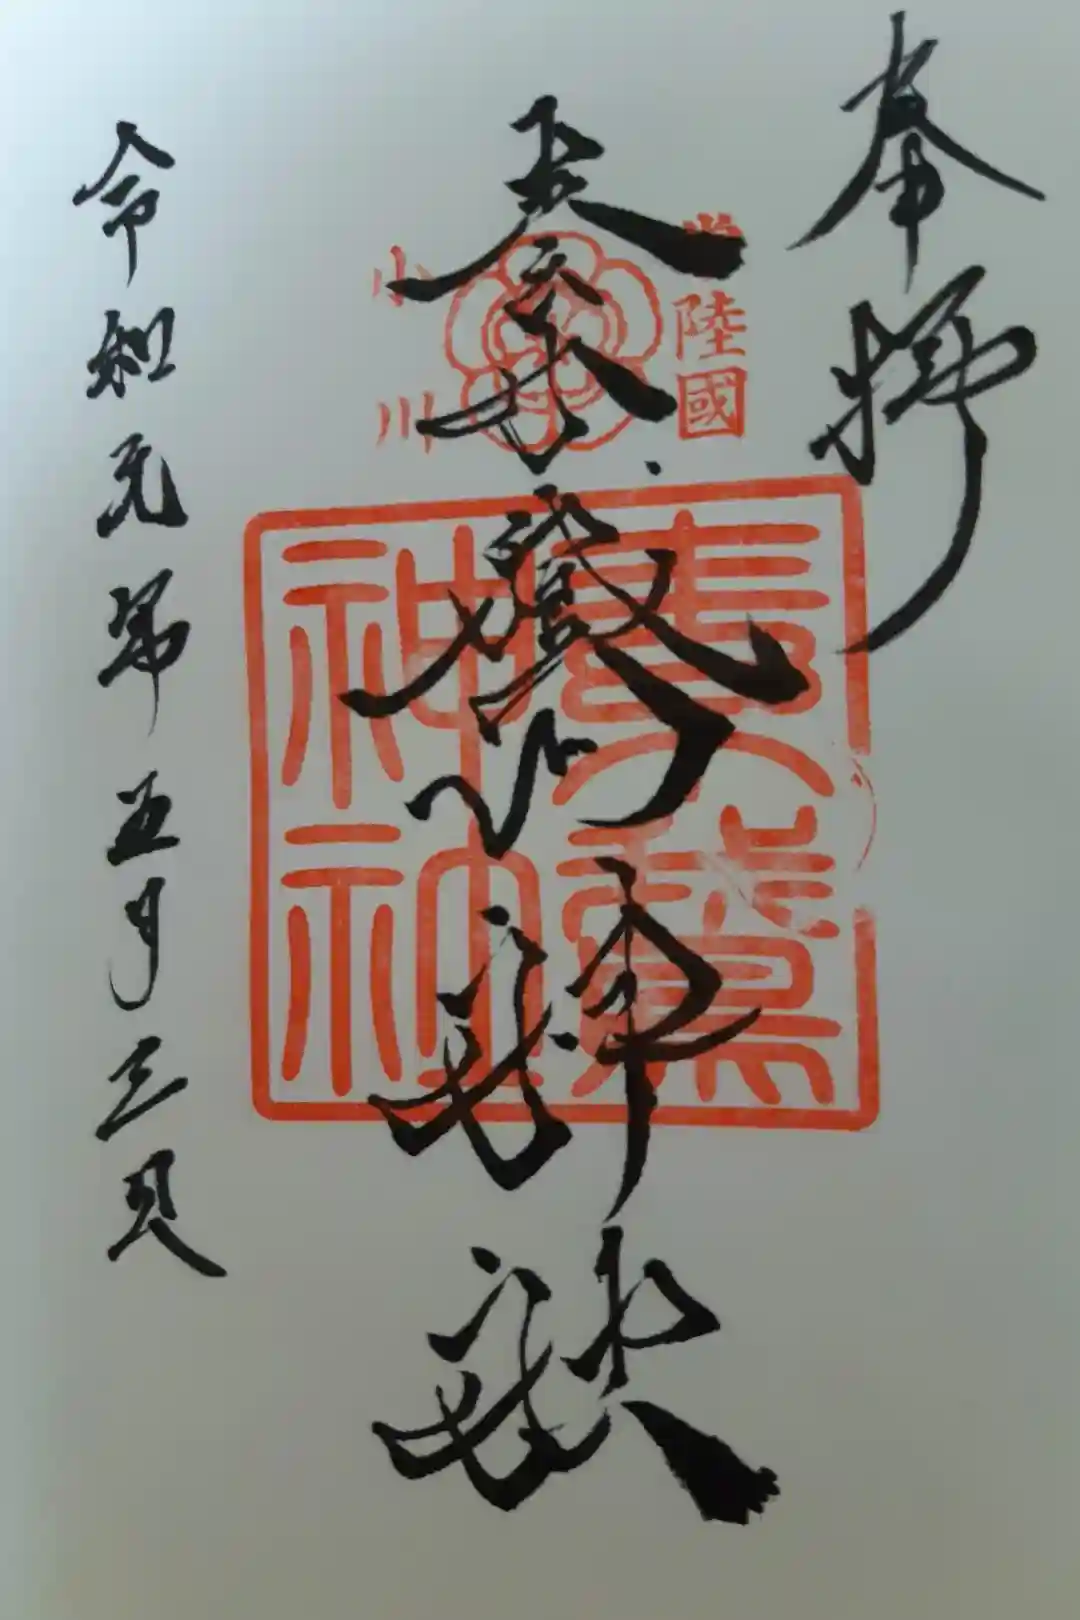 奉拝
常陸國
素鵞神社
素鵞
神社
小川
令和元年五月三日